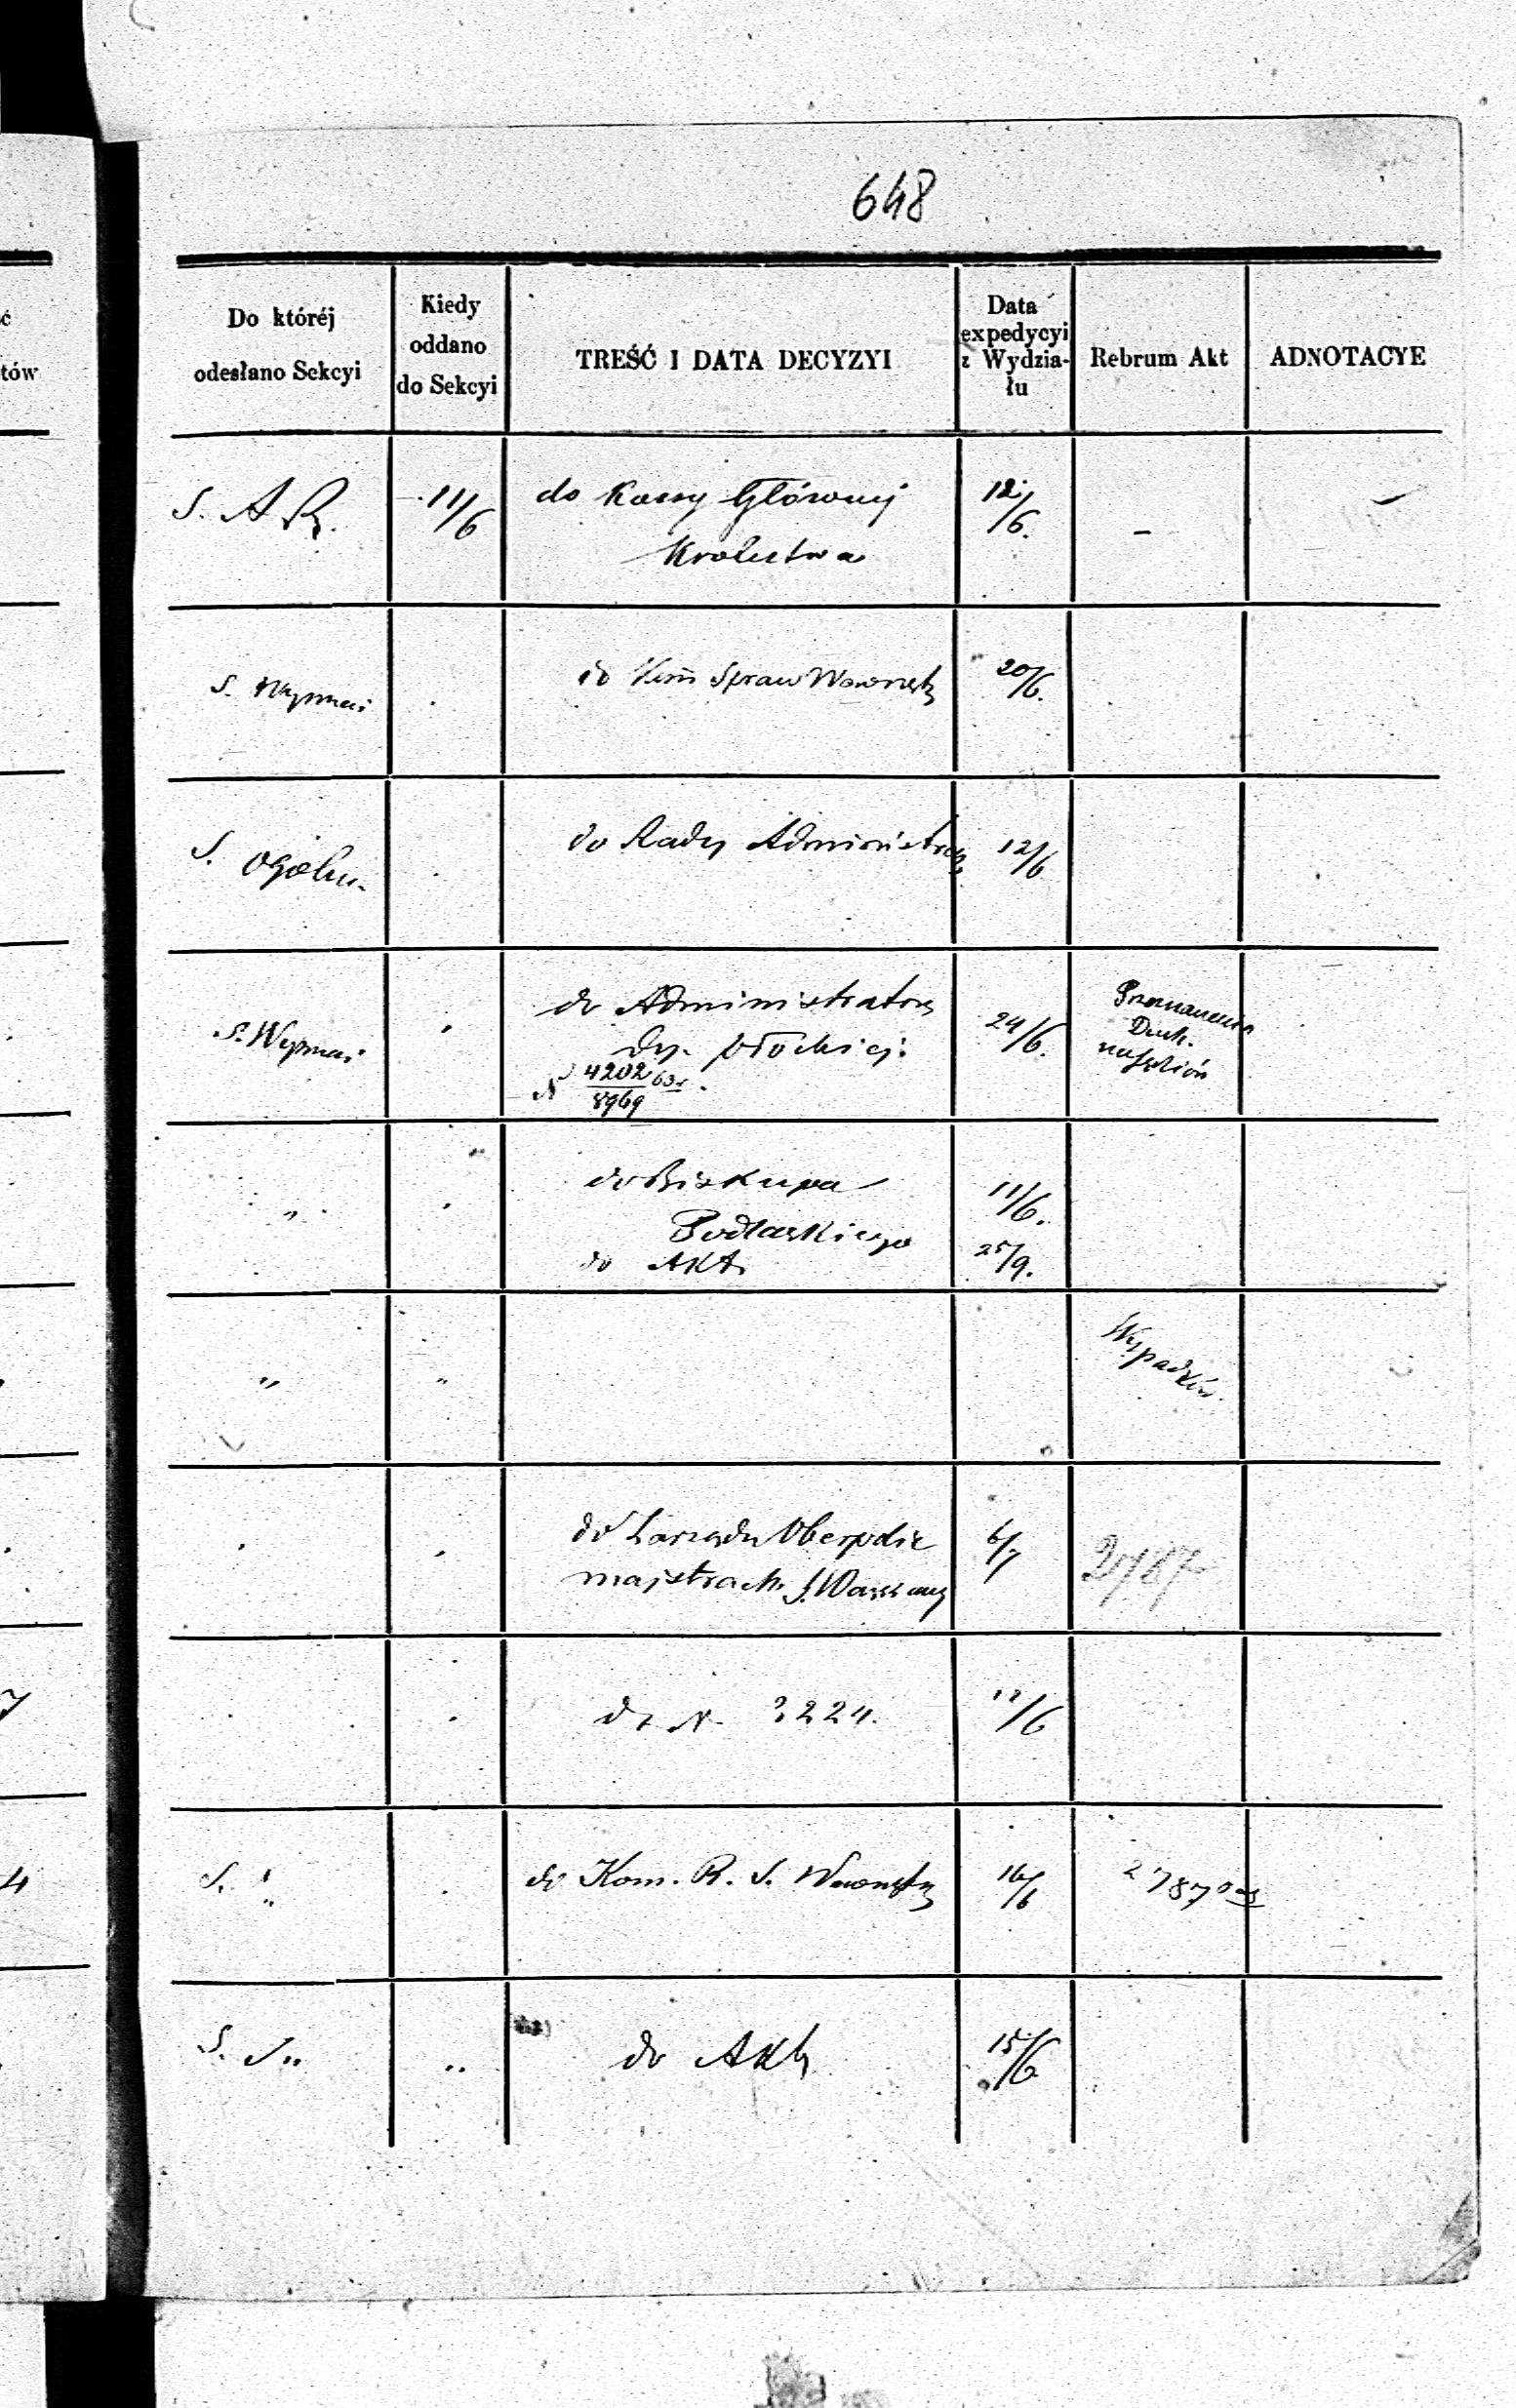 648
Do któréj
odesłano Sekcyi
Kiedy
oddano
do Sekcyi
TREŚĆ I DATA DECYZYI
Data
expedycyi
z Wydzia-
łu
Rebrum Akt
ADNOTACYE
S. A R.
11/6
do Kassy Głównej
Królestwa
12/6.
-
S. Wyznań
do Kom Spraw Wewnętrz
20/6.
S. Ogóln.
do Rady Administracyj
12/6
S. Wyznań
do Administratora
Dyec. Płockiej.
N 4202/8969
24/6.
Duch.
"
do Biskupa
Podlaskiego
11/6.
do Akt
25/9.
"
"
Wypadków.
do Zarządu Oberpolic
majstra m. S. Warszawy
6/7
2787
do N 3224.
12/6
S. "
do Kom. R. S. Wewnętrz
16/6
2787
S. J "
"
do Akt
15/6